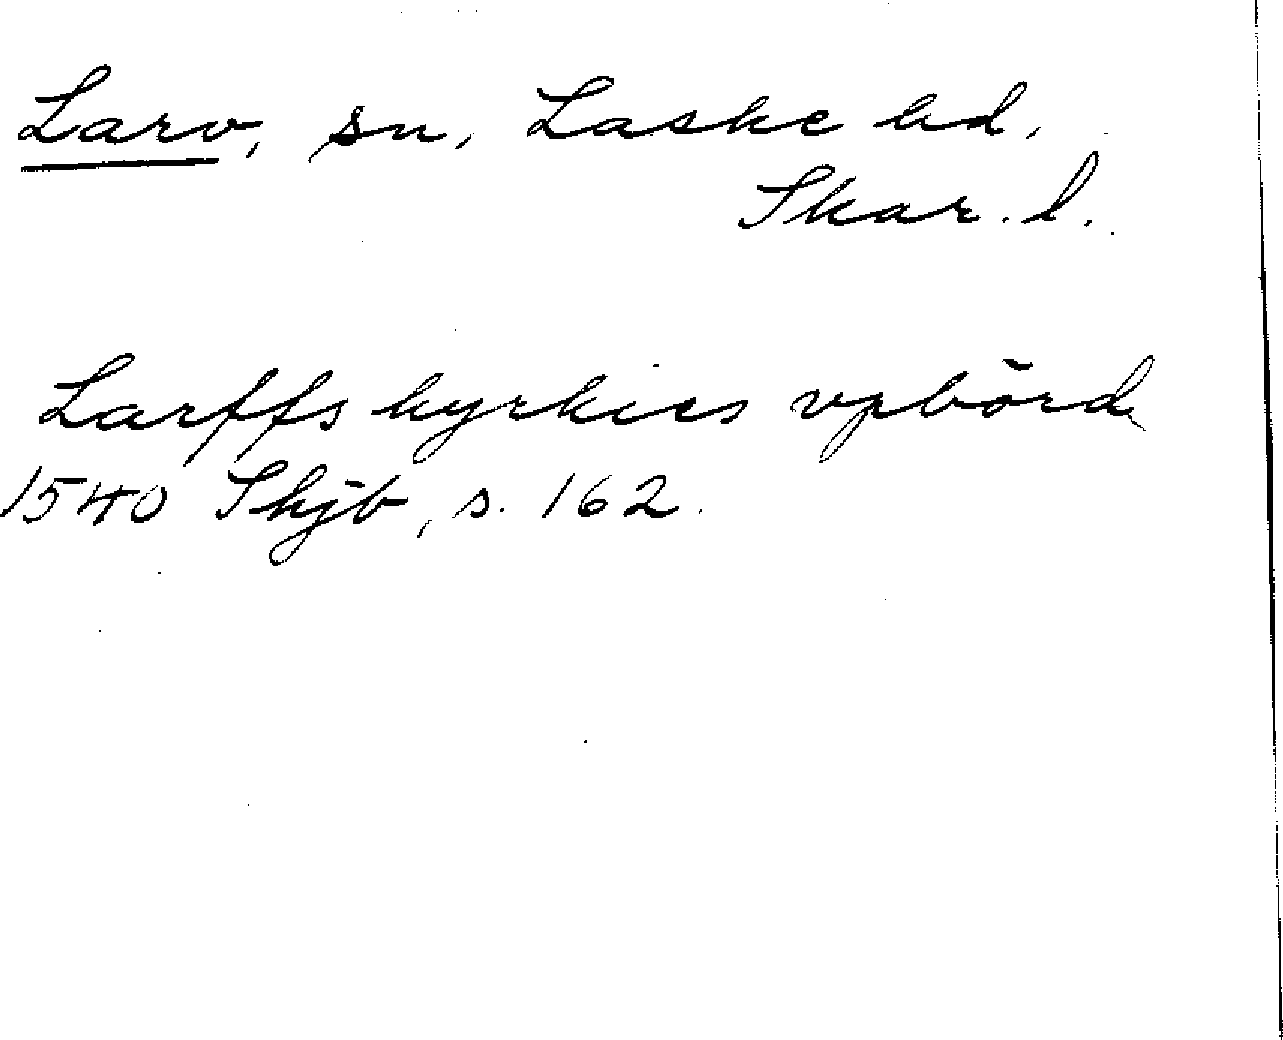 Larv, sn, Laske hd,
Skar. l.
Larffs kyrkies vpbörd
1540 Skjb, s. 162.